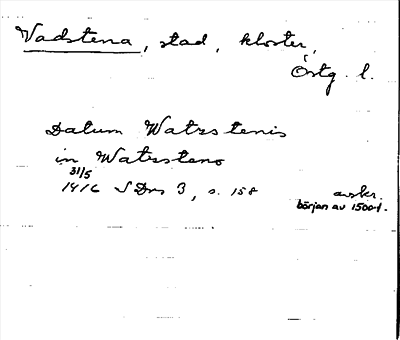 Vadstena, stad, kloster,
Östg. l.
Datum Watzstenis
in Watzsteno
31/5
1416 SDns 3, s. 158
avskr.
början av 1500-t.